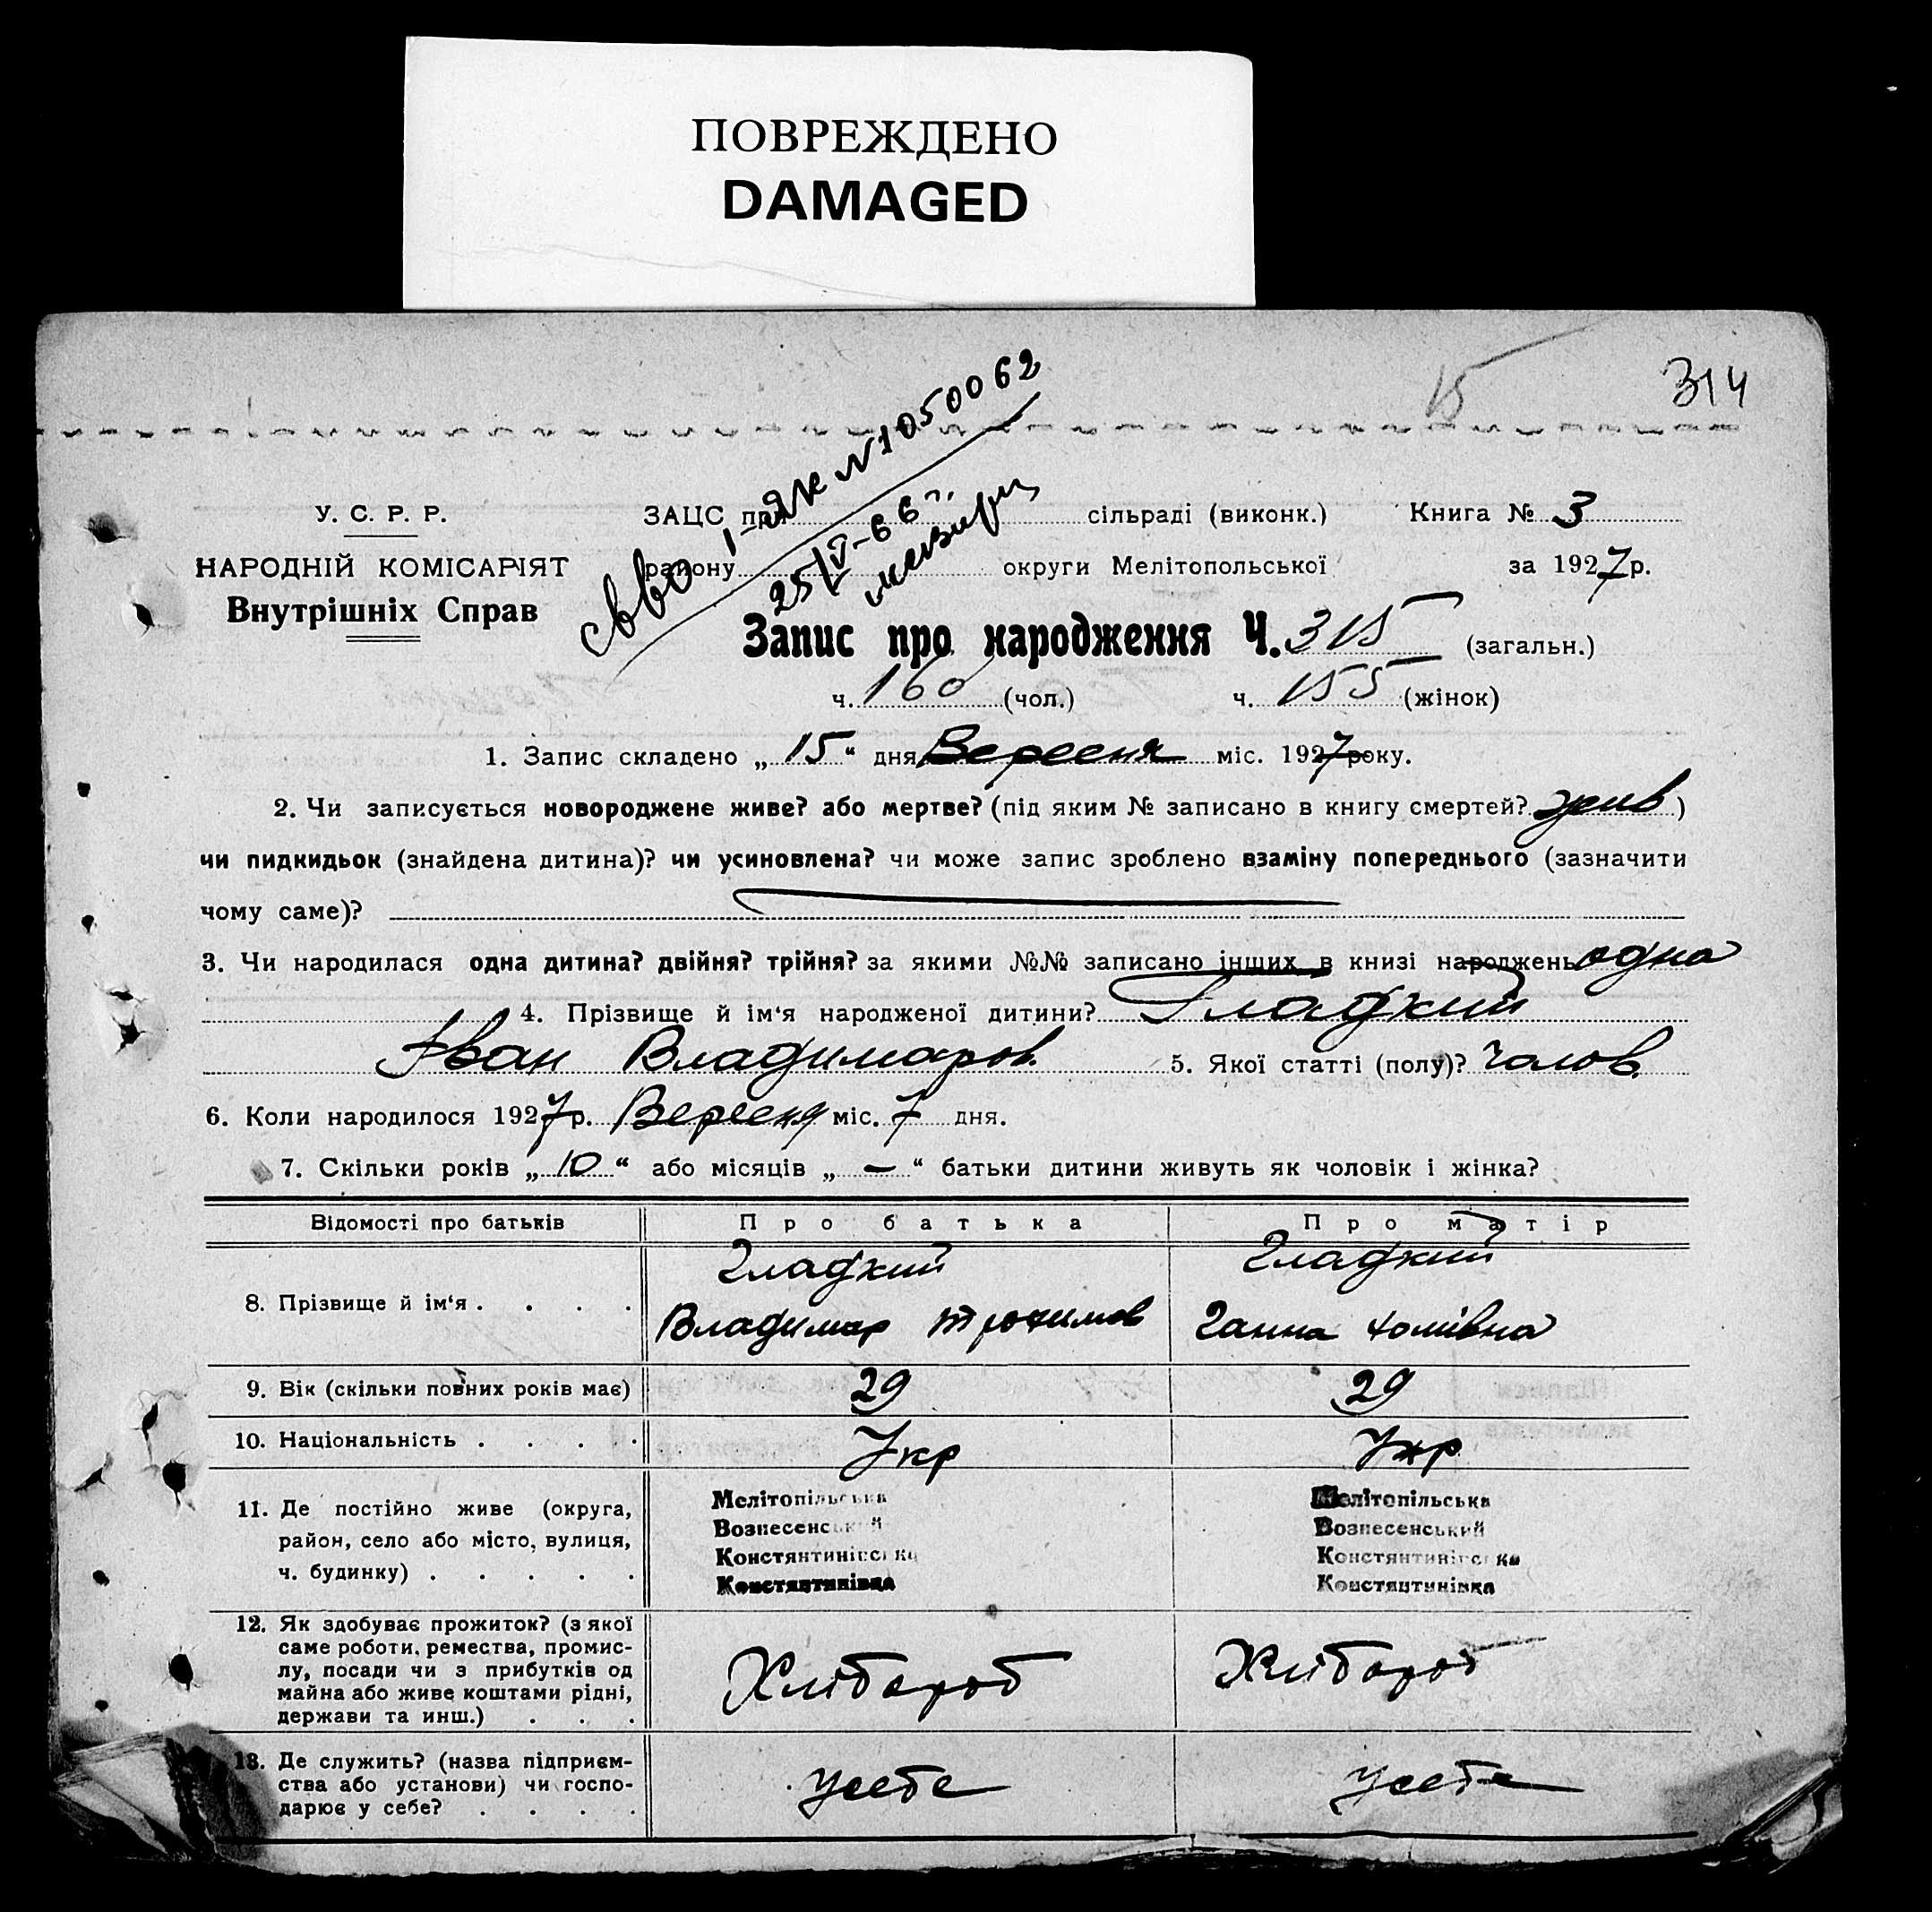 ПОВРЕЖДЕНО
DAMAGED
15
314
У. С. Р. Р.
НАРОДНІЙ КОМІСАРІЯТ
Внутрішніх Справ
Свво І-ЯК №1050062
25/V-66 г.
ЗАЦС при сільраді (виконк.) Книга № 3
району округи Мелітопольської за 1927 р.
Запис про народження Ч. 315 (загальн.)
ч. 160 (чол.) ч. 155 (жінок)
1. Запис складено „ 15 “ дня Вересня міс. 1927 року.
2. Чи записується новороджене живе? або мертве? (під яким № записано в книгу смертей? жив )
чи пидкидьок (знайдена дитина)? чи усиновлена? чи може запис зроблено взаміну попереднього (зазначити
чому саме)?
3. Чи народилася одна дитина? двійня? трійня? за якими №№ записано інших в книзі народжень одна
4. Прізвище й ім‘я народженої дитини? Гладкий
Іван Владимиров. 5. Якої статті (полу)? чолов.
6. Коли народилося 1927 р. Вересня міс. 7 дня.
7. Скільки років „ 10 “ або місяців „ — “ батьки дитини живуть як чоловік і жінка?
Відомості про батьків Про батька Про матір
8. Прізвище й ім‘я . . . . Гладкий Владимир Трохимов Гладкий Ганна Хомівна
9. Вік (скільки повних років має) 29 29
10. Національність . . . . Укр Укр
11. Де постійно живе (округа,
район, село або місто, вулиця,
ч. будинку) . . . . .
Мелітопільська
Вознесенський
Констянтинівська
Констянтинівка
Мелітопільська
Вознесенський
Констянтинівська
Констянтинівка
12. Як здобуває прожиток? (з якої
саме роботи, ремества, промис-
лу, посади чи з прибутків од
майна або живе коштами рідні,
держави та инш.) . . .
Хлібороб Хлібороб
13. Де служить? (назва підприєм-
ства або установи) чи госпо-
дарює у себе? . . . .
Усебе Усебе